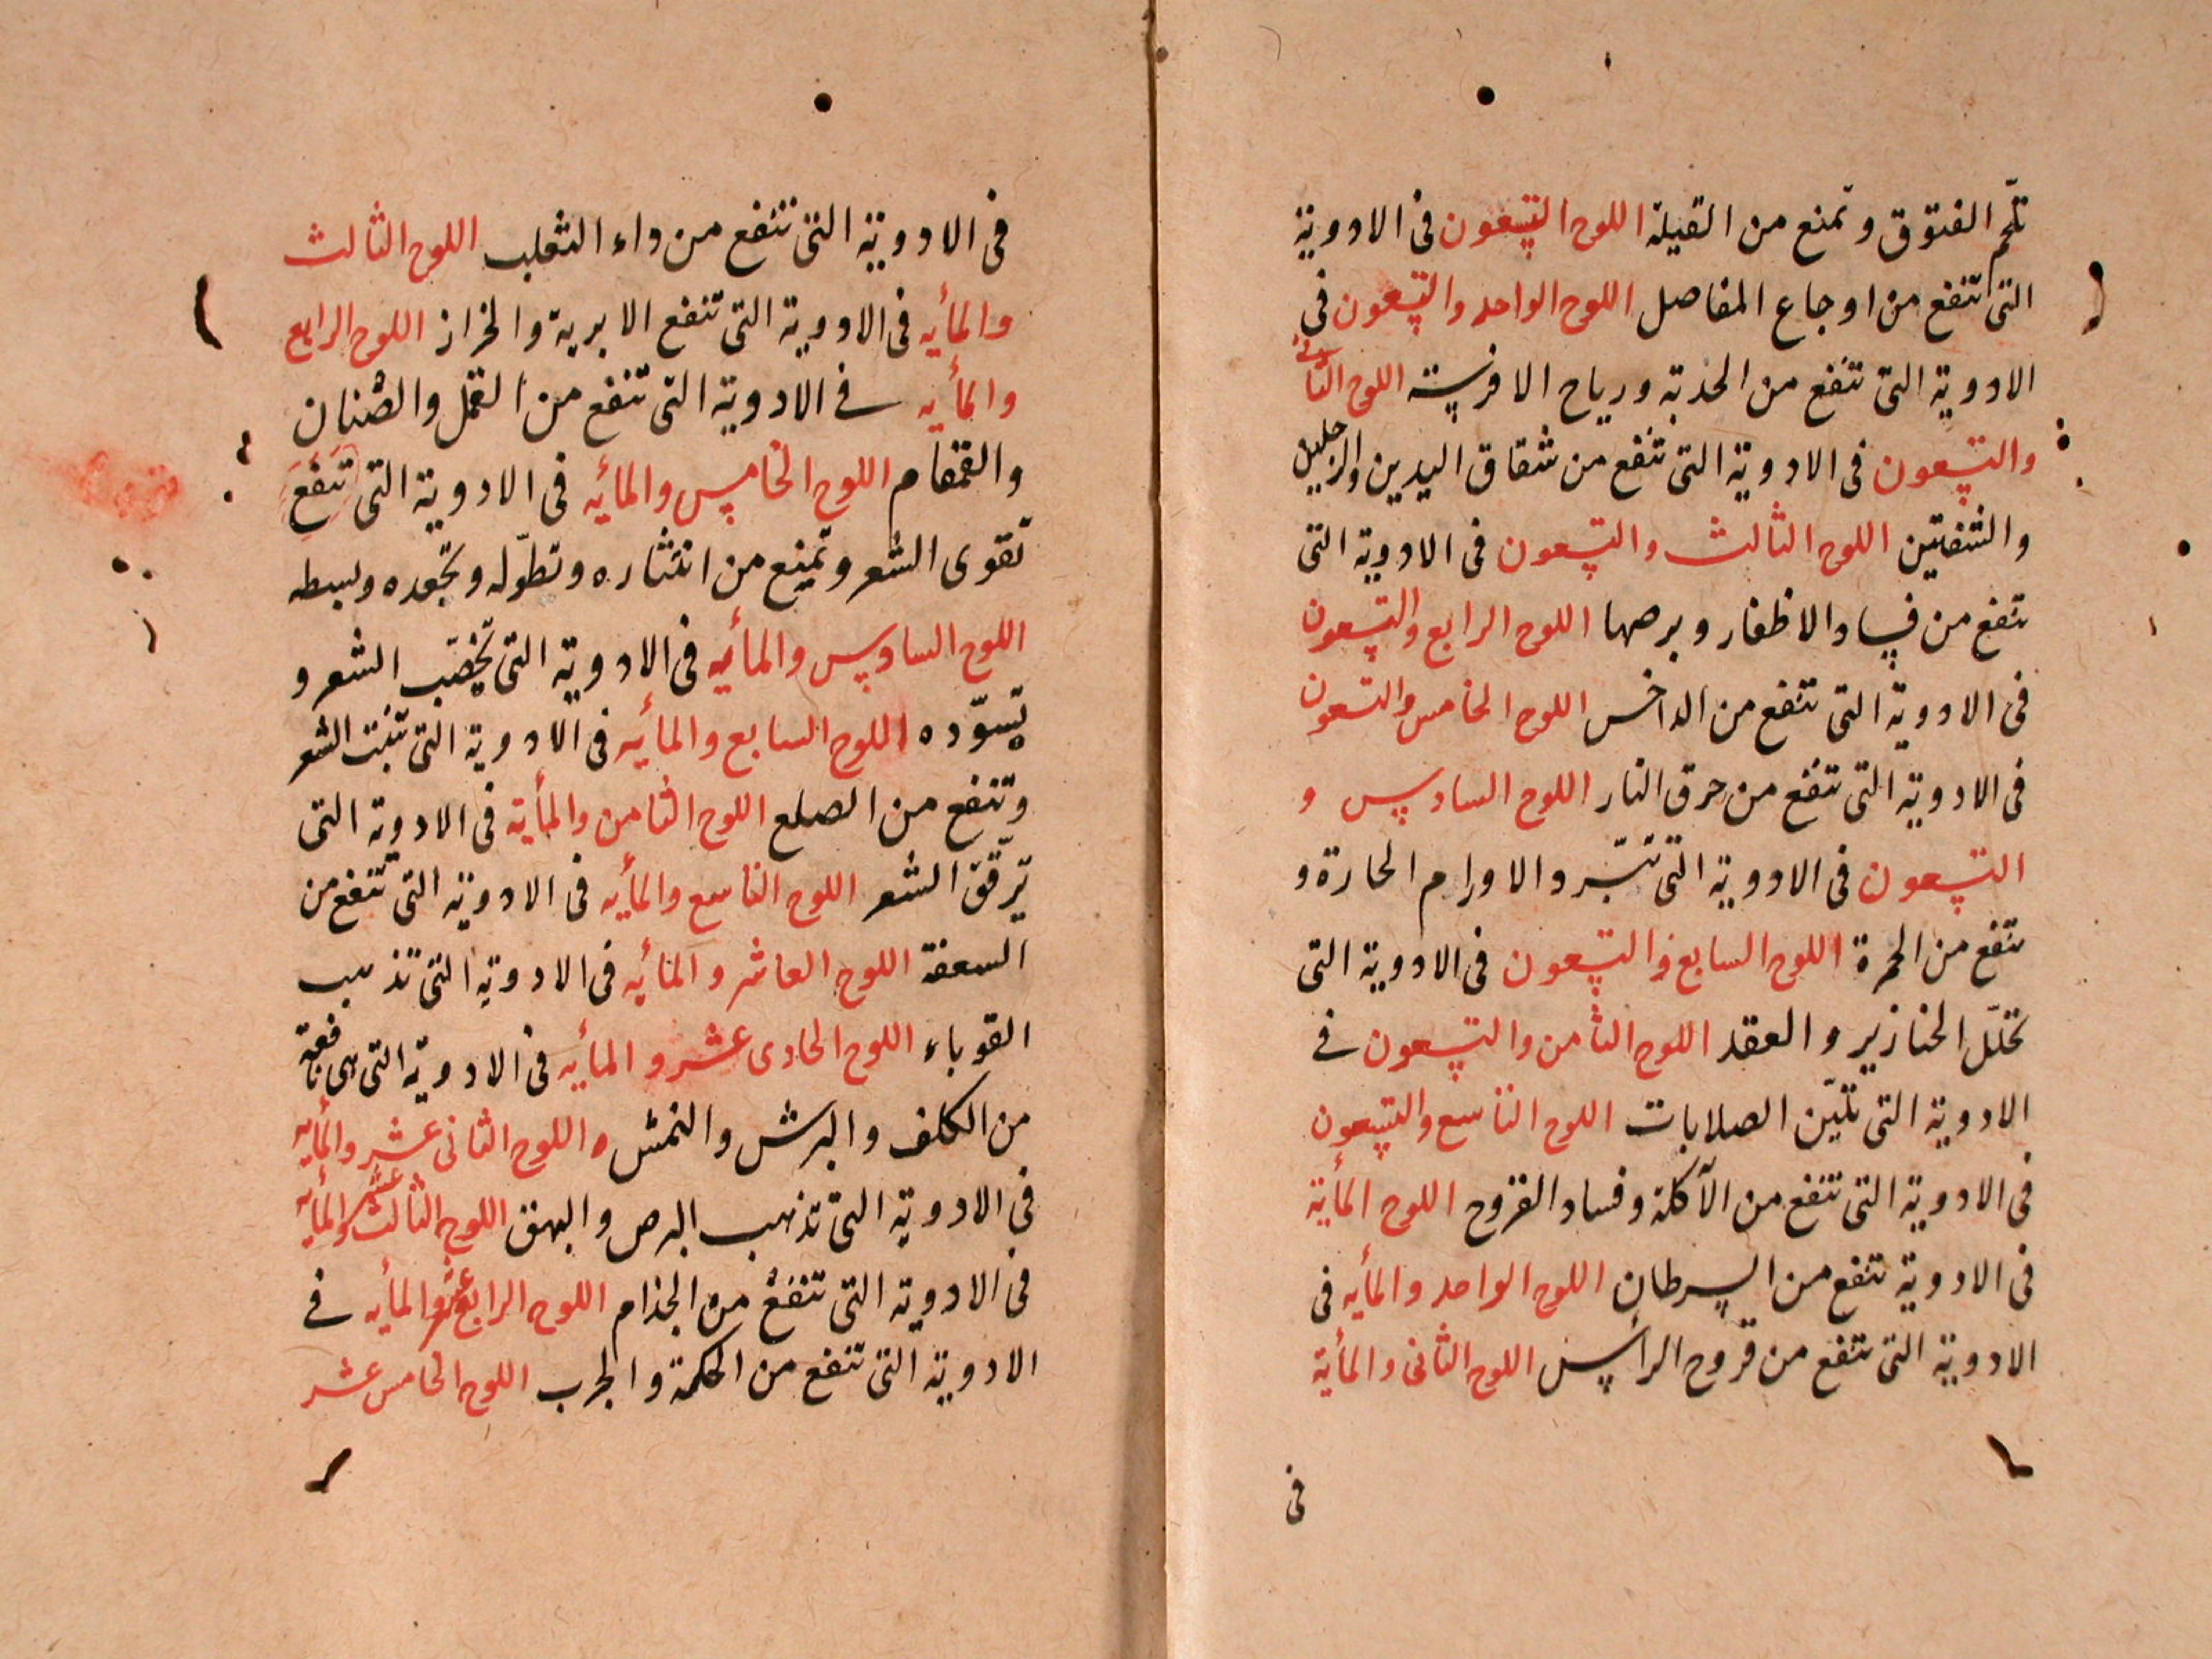 تلحم الفتوق وتمنع من القيلة اللوح التسعون فى الادوية
التى تنفع من اوجاع المفاصل اللوح الواحد والتسعون فى
الادوية التى تنفع من الحدبة ورياح الافرسة اللوح الثانى
والتسعون فى الادوية التى تنفع من شقاق اليدين والرجلين
والشفتين اللوح الثالث والتسعون فى الادوية التى
تنفع من فساد الاظفار وبرصها اللوح الرابع والتسعون
فى الادوية التى تنفع من الداخس اللوح الخامس والتسعون
فى الادوية التى تنفع من حرق النار اللوح السادس و
التسعون فى الادوية التى تبرد الاورام الحارة و
تنفع من الحمرة اللوح السابع والتسعون فى الادوية التى
تحلّل الخنازير والعقد اللوح الثامن والتسعون فى
الادوية التى تليّن الصلابات اللوح التاسع والتسعون
فى الادوية التى تنفع من الآكلة وفساد القروح اللوح المأية
فى الادوية تنفع من السرطان اللوح الواحد والمأيه فى
الادوية التى تنفع من قروح الراس اللوح الثانى والمأية
فى
فى الادوية التى تنفع من داء الثعلب اللوح الثالث
والمأيه فى الادوية التى تنفع الابرية والحزاز اللوح الرابع
والمأيه فى الادوية التى تنفع من القمل والصئبان
والقمقام اللوح الخامس والمأيه فى الادوية التى تنفع
تقوى الشعر وتمنع من انتثاره وتطوّله وتجعده وتبسطه
اللوح السادس والمأيه فى الادوية التى تخضب الشعر و
تسوّده اللوح السابع والمأيه فى الادوية التى تنبت الشعر
وتنفع من الصلع اللوح الثامن والمأية فى الادوية التى
ترّقق الشعر اللوح التاسع والمأيه فى الادوية التى تنفع من
السعفة اللوح العاشر والمأيه فى الادوية التى تذهب
القوباء اللوح الحادى عشر والمأيه فى الادوية التى هى نافعة
من الكلف والبرش والنمش ه اللوح الثانى عشر والمأيه
فى الادوية التى تذهب البرص والبهق اللوح الثالث عشر والمأيه
فى الادوية التى تنفع من الجذام اللوح الرابع عشر والمأيه فى
الادوية التى تنفع من الحكة والجرب اللوح الخامس عشر